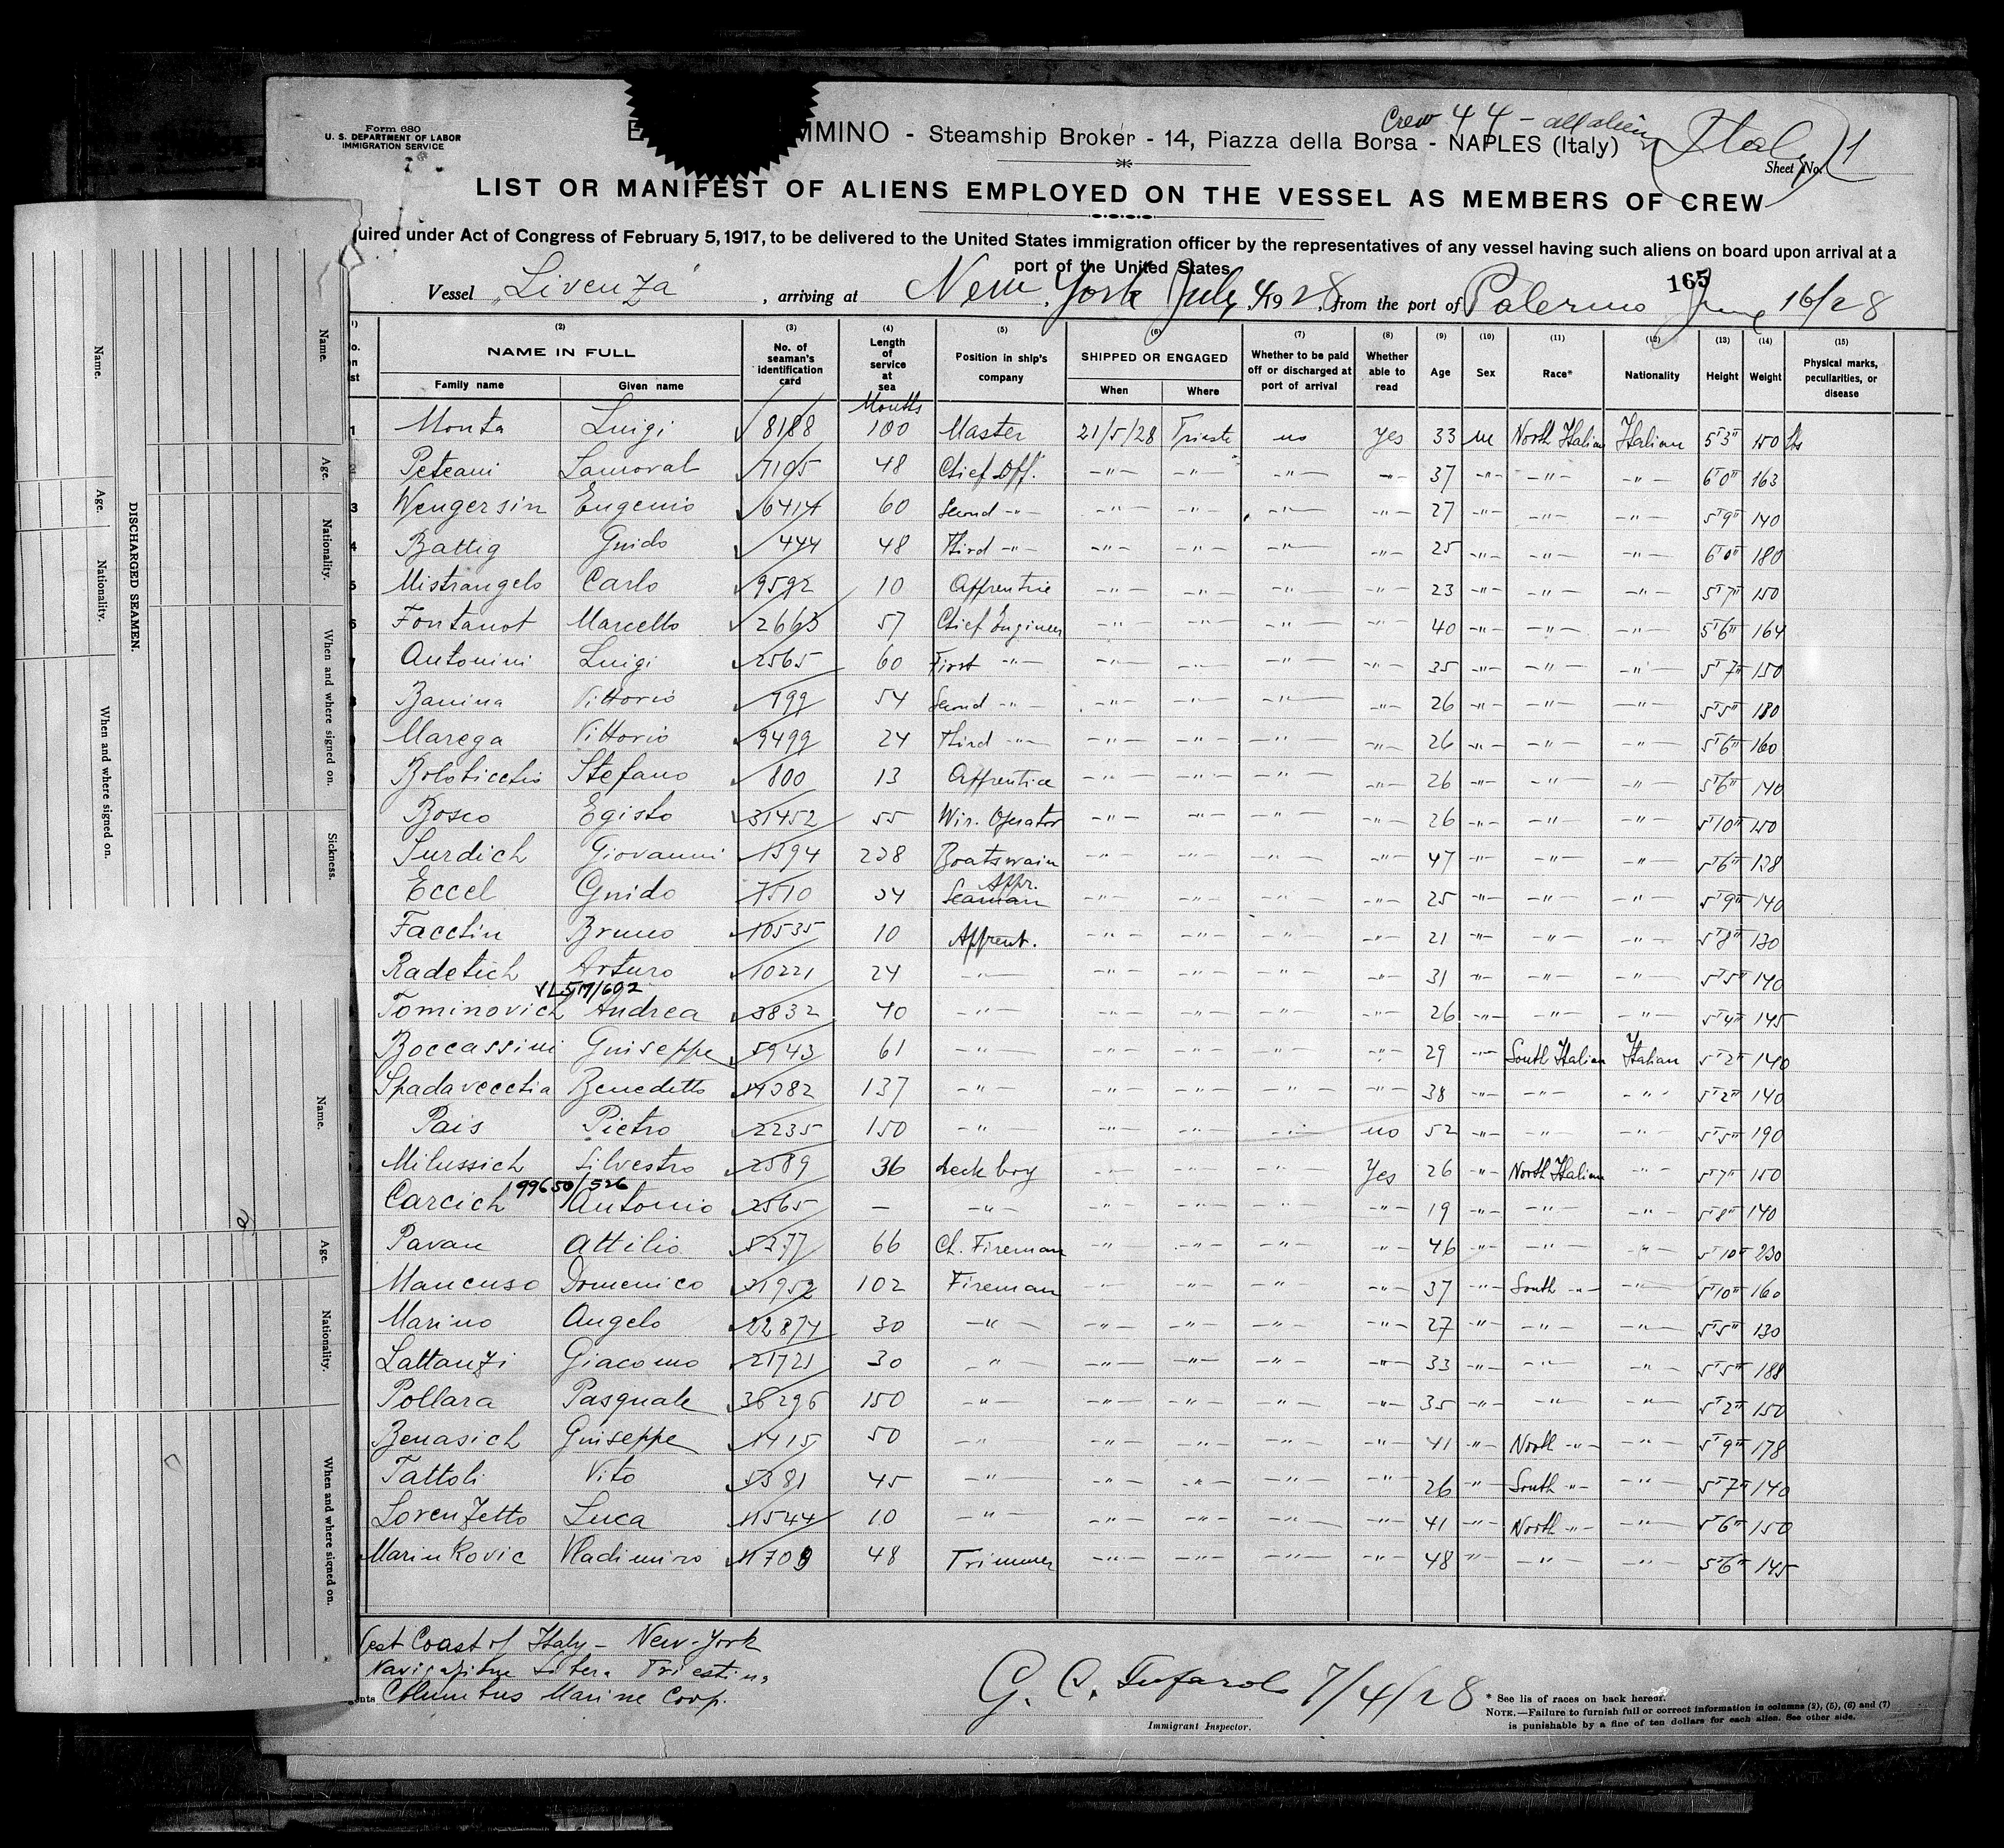 Form 680
U. S. DEPARTMENT OF LABOR
IMMIGRATION SERVICE
Crew 44 - all aliens
(Italy) 1
MMINO - Steamship Broker - 14, Piazza della Borsa - NAPLES (Italy)
Sheet No.
LIST OR MANIFEST OF ALIENS EMPLOYED ON THE VESSEL AS MEMBERS OF CREW
uired under Act of Congress of February 5, 1917, to be delivered to the United States immigration officer by the representatives of any vessel having such aliens on board upon arrival at a
port of the United States
165
Vessel "Livenza", arriving at New York July 4/1928, from the port of Palermo June 16/28
(1) (2) (3) (4) (5) (6) (7) (8) (9) (10) (11) (12) (13) (14) (15)
NAME IN FULL No. of seaman's identification card Length of service at sea Position in ship's company SHIPPED OR ENGAGED Whether to be paid off or discharged at port of arrival Whether able to read Age Sex Race* Nationality Height Weight Physical marks, peculiarities, or disease
Family name Given name When Where
Months
1 Monta Luigi 8188 100 Master 21/5/28 Trieste no Yes 33 M North Italian Italian 5'3" 150 lbs
Peteani Lamoral 7105 48 Chief Off. -"- -"- -"- -"- 37 -"- -"- -"- 6'0" 163
3 Wengersin Eugenio 6414 60 Second -"- -"- -"- -"- -"- 27 -"- -"- -"- 5'9" 140
4 Battig Guido 444 48 Third -"- -"- -"- -"- -"- 25 -"- -"- -"- 6'0" 180
5 Mistrangelo Carlo 9592 10 Apprentice -"- -"- -"- -"- 23 -"- -"- -"- 5'7" 150
6 Fontanot Marcello 2663 57 Chief Engineer -"- -"- -"- -"- 40 -"- -"- -"- 5'6" 164
7 Antonini Luigi 2565 60 First -"- -"- -"- -"- -"- 35 -"- -"- -"- 5'7" 150
8 Banina Vittorio 799 54 Second -"- -"- -"- -"- -"- 26 -"- -"- -"- 5'5" 180
9 Marega Vittorio 9499 24 Third -"- -"- -"- -"- -"- 26 -"- -"- -"- 5'6" 160
Boloticchio Stefano 800 13 Apprentice -"- -"- -"- -"- 26 -"- -"- -"- 5'6" 140
Bosco Egisto 31452 55 Wir. Operator -"- -"- -"- -"- 26 -"- -"- -"- 5'10" 150
Surdich Giovanni 1394 228 Boatswain -"- -"- -"- -"- 47 -"- -"- -"- 5'6" 128
Appr.
Eccel Guido 7510 34 Seaman -"- -"- -"- -"- 25 -"- -"- -"- 5'9" 140
Facchin Bruno 10535 10 Apprent. -"- -"- -"- -"- 21 -"- -"- -"- 5'8" 130
Radetich Arturo 10221 24 -"- -"- -"- -"- -"- 31 -"- -"- -"- 5'5" 140
Tominovich Andrea 3832 40 -"- -"- -"- -"- -"- 26 -"- -"- -"- 5'4" 145
Boccassini Guiseppe 5943 61 -"- -"- -"- -"- -"- 29 -"- South Italian Italian 5'2" 140
Spadavecchia Benedetto 14382 137 -"- -"- -"- -"- -"- 38 -"- -"- -"- 5'2" 140
Pais Pietro 2235 150 -"- -"- -"- -"- no 52 -"- -"- -"- 5'5" 190
Milussich Silvestro 2589 36 deck boy -"- -"- -"- Yes 26 -"- North Italian -"- 5'7" 150
99650/526
Carcich Antonio 2565 - -"- -"- -"- -"- -"- 19 -"- -"- -"- 5'8" 140
Pavan Attilio 5277 66 Ch. Fireman -"- -"- -"- -"- 46 -"- -"- -"- 5'10" 230
Mancuso Domenico 31952 102 Fireman -"- -"- -"- -"- 37 -"- South -"- -"- 5'10" 160
Marino Angelo 22874 30 -"- -"- -"- -"- -"- 27 -"- -"- -"- 5'5" 130
Lattanzi Giacomo 21721 30 -"- -"- -"- -"- -"- 33 -"- -"- -"- 5'5" 188
Pollara Pasquale 36296 150 -"- -"- -"- -"- -"- 35 -"- -"- -"- 5'2" 150
Benasich Guiseppe 1415 50 -"- -"- -"- -"- -"- 41 -"- North -"- -"- 5'9" 178
Tattoli Vito 5381 45 -"- -"- -"- -"- -"- 26 -"- South -"- -"- 5'7" 140
Lorenzetto Luca 11544 10 -"- -"- -"- -"- -"- 41 -"- North -"- -"- 5'6" 150
Marinkovic Vladimiro 11708 48 Trimmer -"- -"- -"- -"- 48 -"- -"- -"- 5'6" 145
est Coast of Italy - New-York
Navigazione Libera Triestina
ents Columbus Marine Corp.
G. C. Tufarolo 7/4/28
Immigrant Inspector.
* See lis of races on back hereof.
NOTE.—Failure to furnish full or correct information in columns (2), (5), (6) and (7)
is punishable by a fine of ten dollars for each alien. See other side.
DISCHARGED SEAMEN.
Name. Age. Nationality. When and where signed on.
Name. Age. Nationality. When and where signed on. Sickness.
Name. Age. Nationality. When and where signed on.